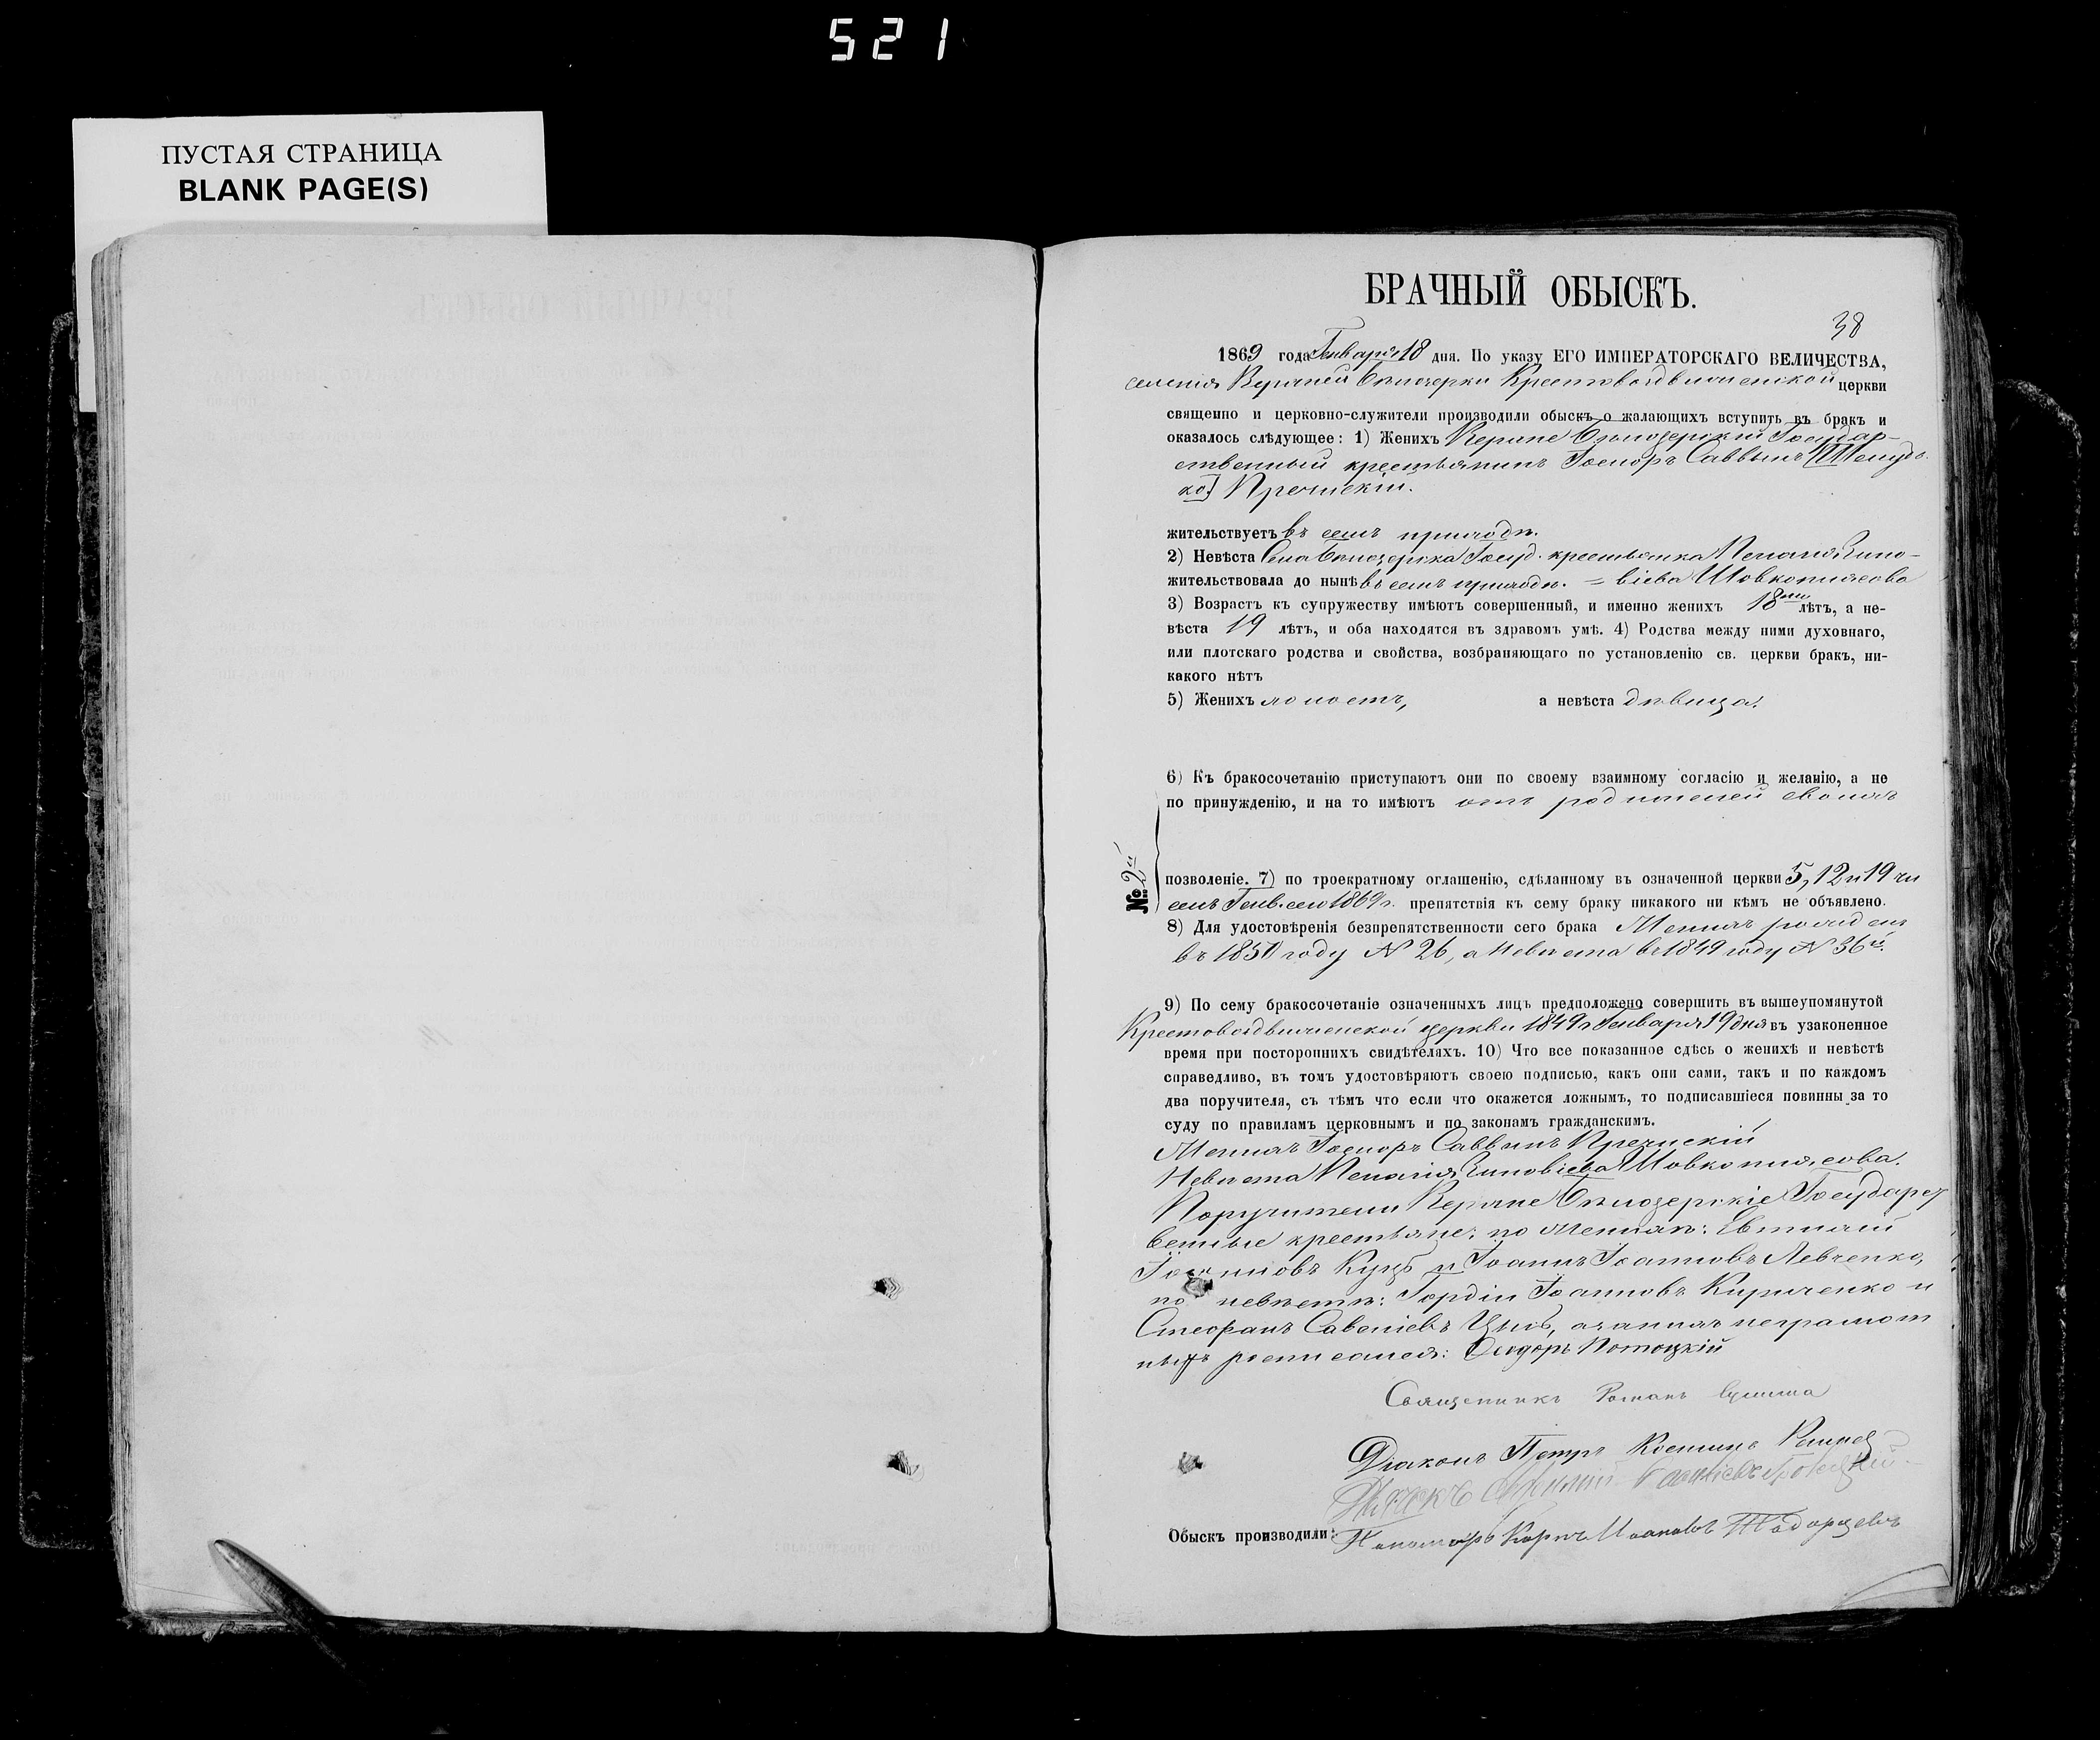 521
ПУСТАЯ СТРАНИЦА
BLANK PAGE(S)
БРАЧНЫЙ ОБЫСКЪ.
38
1869 года Генваря 18 дня. По указу ЕГО ИМПЕРАТОРСКАГО ВЕЛИЧЕСТВА,
селенія Верхней Бѣлозерки Крестовоздвиженской церкви
священно и церковно-служители производили обыскъ о жалающихъ вступить въ бракъ и
оказалось слѣдующее: 1) Женихъ Бѣлозерскій Государ-
ственный крестьянинъ Саввинъ
Пречискій.
жительствуетъ въ семъ приходѣ.
2) Невѣста Села Бѣлозерка Госуд. крестьянка Пелагія Зино-
жительствовала до нынѣ въ семъ приходѣ. = віева Шовкоплясова
3) Возрастъ къ супружеству имѣютъ совершенный, и именно женихъ 18ти лѣтъ, а не-
вѣста 19 лѣтъ, и оба находятся въ здравомъ умѣ. 4) Родства между ними духовнаго,
или плотскаго родства и свойства, возбраняющаго по установленію св. церкви бракъ, ни-
какого нѣтъ
5) Женихъ холостъ, а невѣста дѣвица.
6) Къ бракосочетанію приступаютъ они по своему взаимному согласію и желанію, а не
по принужденію, и на то имѣютъ отъ родителей своихъ
№ 2й
позволеніе. 7) по троекратному оглашенію, сдѣланному въ означенной церкви 5, 12 и 19 чи
селъ Генв. сего 1869 г. препятствія къ сему браку никакого ни кѣмъ не объявлено.
8) Для удостовѣренія безпрепятственности сего брака Женихъ рожденъ
въ 1850 году N 26, а Невѣста въ 1849 году N 36й.
9) По сему бракосочетаніе означенныхъ лицъ предположено совершить въ вышеупомянутой
Крестовоздвиженской церкви 1849 г Генваря 19 дня въ узаконенное
время при постороннихъ свидѣтеляхъ. 10) Что все показанное сдѣсь о женихѣ и невѣстѣ
справедливо, въ томъ удостовѣряютъ своею подписью, какъ они сами, такъ и по каждомъ
два поручителя, съ тѣмъ что если что окажется ложнымъ, то подписавшіеся повинны за то
суду по правиламъ церковнымъ и по законамъ гражданскимъ.
Женихъ Саввинъ Пречискій
Невѣста Пелагія Зиновіева Шовкоплясова.
Поручители Бѣлозерскіе Государст
венные крестьяне: по Женихѣ: Евтихій
Куцъ и Іоаннъ Іоанновъ Левченко,
по невѣстѣ: Гордій Іоанновъ Кириченко и
Стефанъ Савеліевъ а за нихъ неграмот
ныхъ росписался: Ѳеодоръ Потоцкій
Священникъ Романъ
Діаконъ Петръ Костинъ
Дячокъ
Обыскъ производили: Пономарь Карпъ Иоановъ